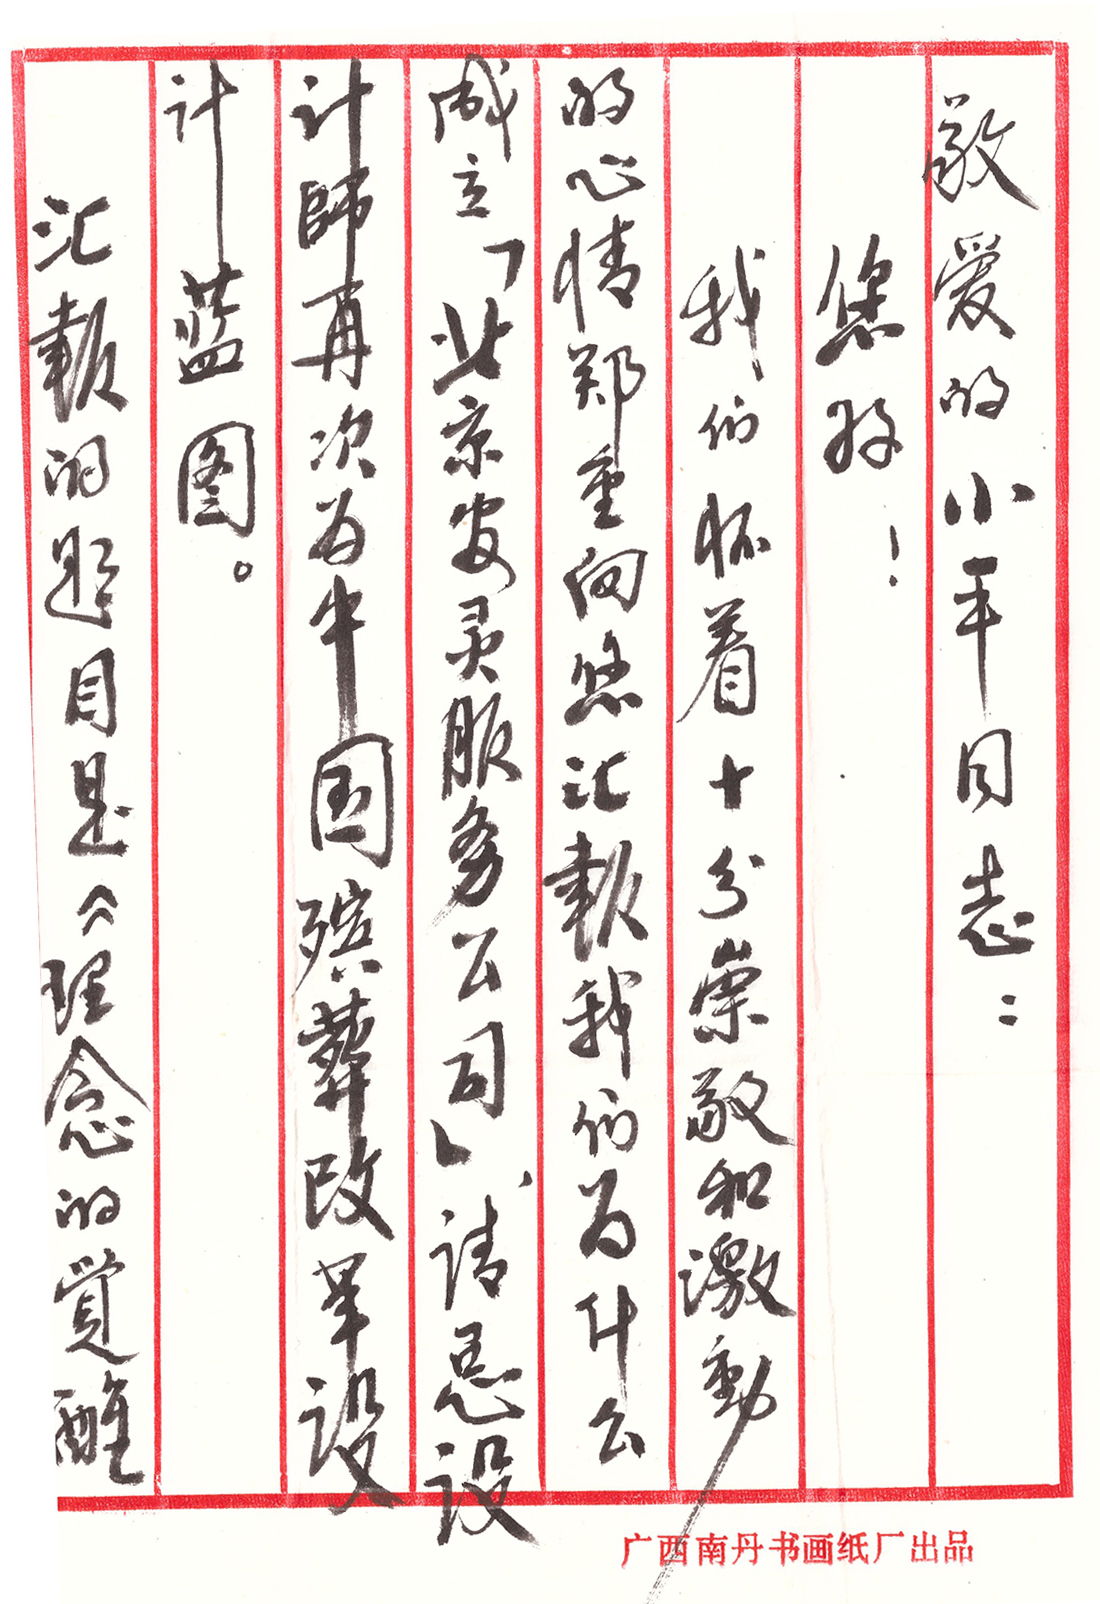 敬爱的小平同志：
您好！
我们怀着十分崇敬和激動
的心情郑重向您汇報我们为什么
成立「北京安灵服务公司」，请总设
计師再次为中国殡葬改革设
计蓝图。
汇報的题目是《理念的覚醒
广西南丹书画纸厂出品